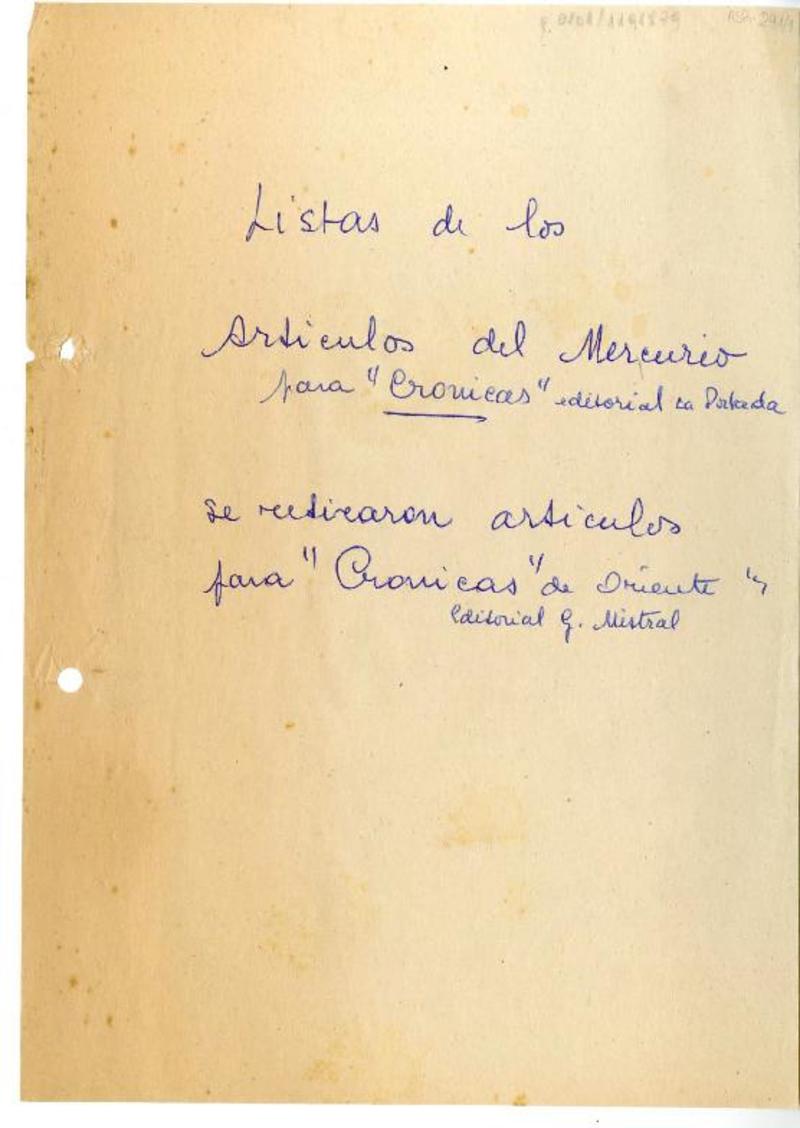 Listas de los
Articulos del Mercurio
para "Cronicas" editorial La Portada
se retiraron articulos
para "Cronicas" de Oriente"
Editorial G. Mistral